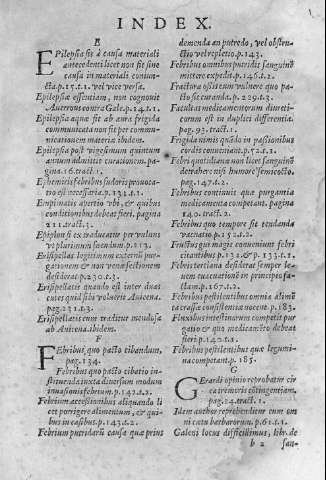 INDEX.
E
EPilepsia fit à causa materiali
antecedenti licet non fit sine
causa in materiali coniun-
cta.p.15.t.1. vel vice versa.
Epilepsiæ essentiam, non cognouit
Auerrous contra Gale.p.14.t.1.
Epilepsia aquæ fit ab aura frigida
communicata non fit per commu-
nicationem materiæ ibidem.
Epilepsia post vigesimum quintum
annum admittit curationem. pa-
gina 16.tract.1.
Ephimeris febribus sudoris prouoca-
tio est necessaria.p.131.t.1.
Empimatis apertio vbi, & quibus
conditionibus debeat fieri. pagina
211.tract.3.
Epiploni sic traducitur per vulnus
vt plurimum
Erisipellas legitimum externũ pur-
gationem & non venæ sectionem
desiderat.p.230.t.3.
Erisipellatis quando est inter duas
cutes quid sibi voluerit Auicena.
pag.231.t.3.
Erisipellatis ortus traditur incudosa
ab Auicena.ibidem.
F
FEbribus, quo pacto cibandum,
pag.134.
Febribus quo pacto cibatio in-
stituenda iuxta diuersum modum
inuasionis febrium.p.142.t.2.
Febrium accessionibus aliquando li-
cet porrigere alimentum, & qui-
bus in casibus.p.143.t.2.
Febrium putridarũ causa quæ prius
demenda an putredo, vel obstru-
ctio vel repletio.p.143.
Febribus omnibus putridis sanguinẽ
mittere expedit.p.146.t.2.
Fractura ossis cum vulnere quo pa-
cto sit curanda.p.229.t.3.
Facultas medicamentorum diureti-
corum est in duplici differentia.
pag.93.tract.1.
Frigida nimis quãdo in passionibus
cordis conueniat.p.72.t.1.
Febri quotidiana non licet sanguinẽ
detrahere nisi humore semicocto.
pag.147.t.2.
Febribus conuenit quæ purgantia
medicamenta competant. pagina
140. tract.2.
Febribus quo tempore sit tendenda
vacuatio.p.152.t.2.
Fructus quæ magis conueniunt febri
citantibus p.132.& p.133.t.1.
Febris tertiana desiderat semper le-
uem euacuationem in principio sta-
tim.p.167.t.2.
Febribus pestilentibus omnia alimẽ
ta crassæ consistentiæ nocent.p.183.
Fluxibus intestinorum competit pur-
gatio & quo medicamẽto debeat
fieri.p.142.t.1.
Febribus pestilentibus quæ legumi-
na competant.p.185.
G
GErardi opinio reprobatur cir-
ca ictericis stringentiam,
pag.24.tract.1.
Idem author reprehenditur cum om
ni catu barbarorum.p.61.t.1.
Galeni locus difficillimus, lib. de
b 2 san-